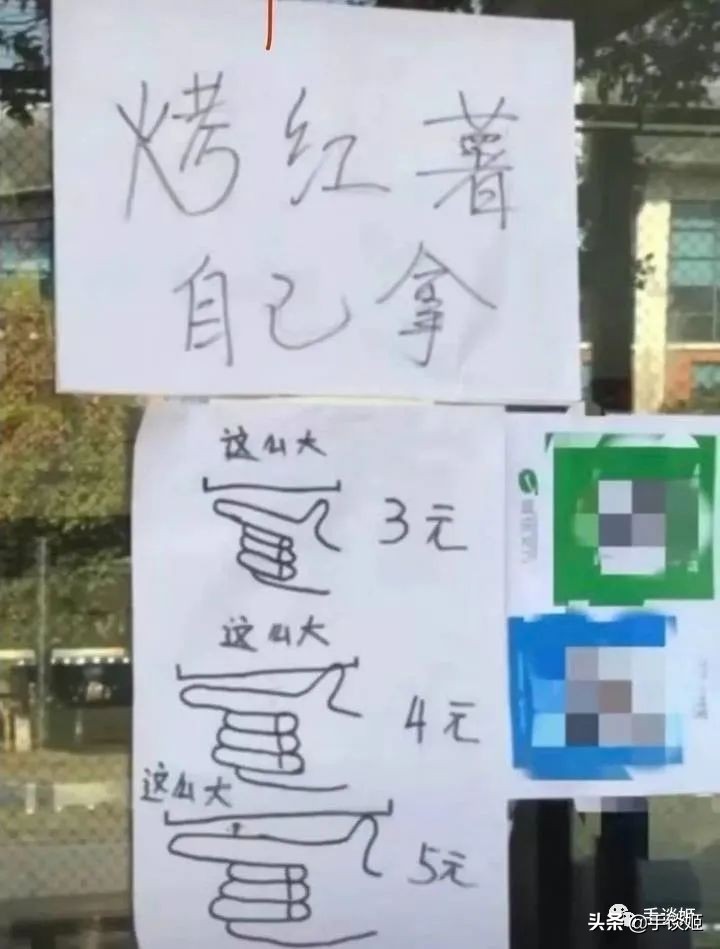 烤红薯
自己拿
这么大
3元
这么大
4元
这么大
5元
头条@手谈姬
手谈姬